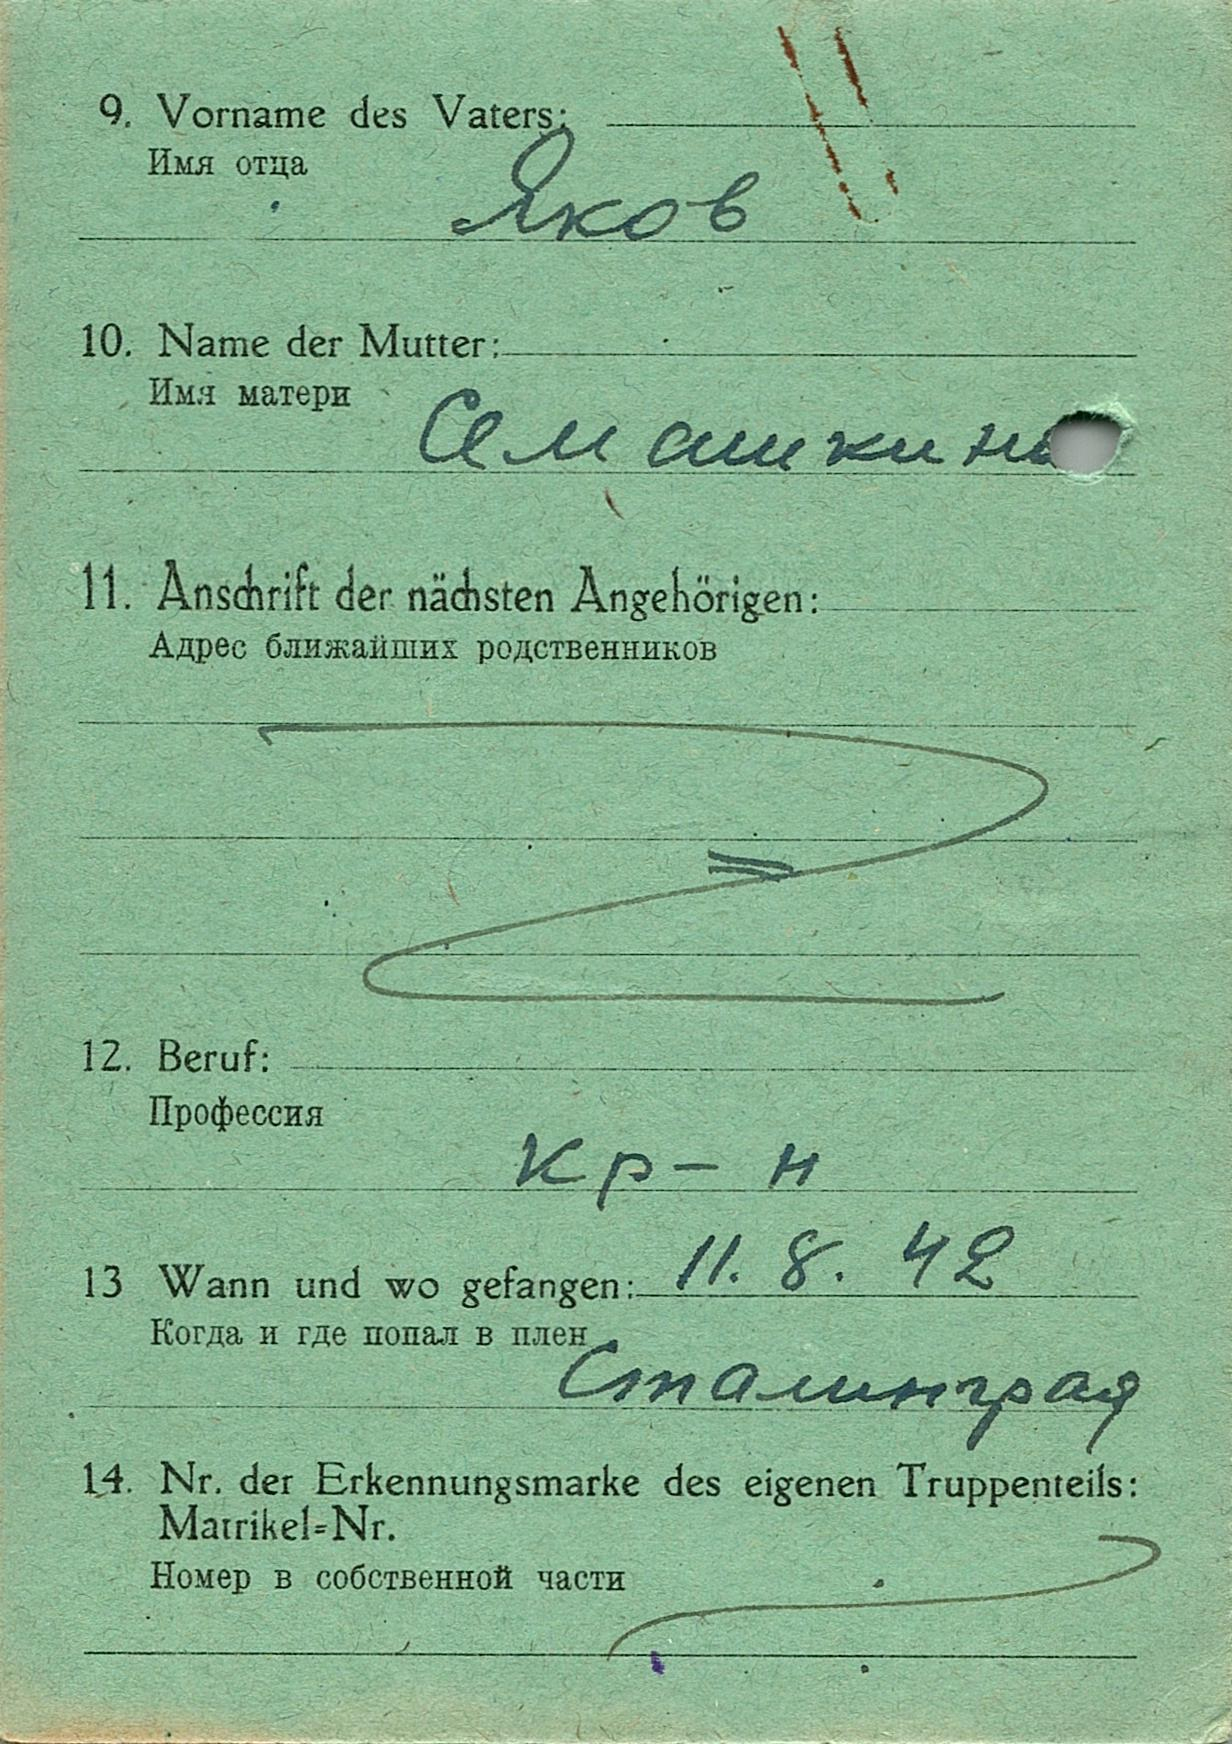 9. Vorname des Vaters:
Имя отца
Яков
10. Name der Mutter:
Имя матери
11. Anschrift der nächsten Angehörigen:
Адрес ближайших родственников
12. Beruf:
Профессия
кр-н
13 Wann und wo gefangen: 11. 8. 42
Когда и где попал в плен
Сталинград
14. Nr. der Erkennungsmarke des eigenen Truppenteils:
Matrikel=Nr.
Номер в собственной части